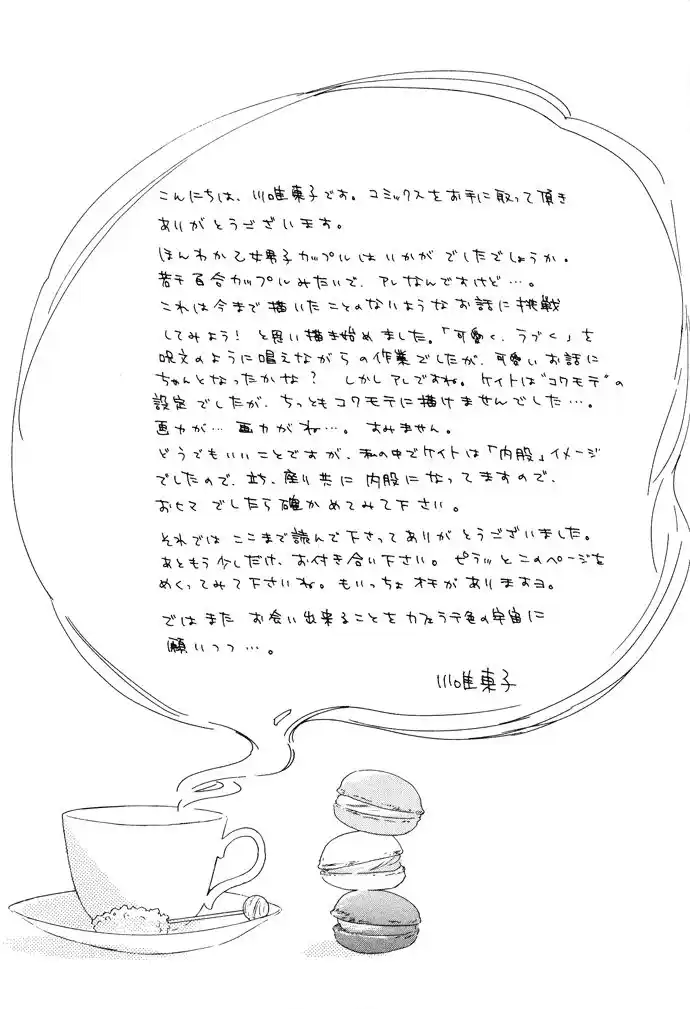 こんにちは、川唯東子です。コミックスをお手に取って頂き
ありがとうございます。
ほんわか乙女男子カップルはいかがでしたでしょうか。
若干百合カップルみたいで、アレなんですけど…。
これは今まで描いたことのないようなお話に挑戦
してみよう！と思い描き始めました。「可愛く、うづく」を
呪文のように唱えながらの作業でしたが、可愛いお話に
ちゃんとなったかな？しかしアレですね。ケイトは"コワモテ"の
設定でしたが、ちっともコワモテに描けませんでした…。
画力が…画力がね…。すみません。
どうでもいいことですが、私の中でケイトは「内股」イメージ
でしたので、立ち、座り共に内股になってますので、
おヒマでしたら確かめてみて下さい。
それではここまで読んで下さってありがとうございました。
あともう少しだけ、お付き合い下さい。ピラッとこのページを
めくってみて下さいね。もいっちょオチがありますヨ。
ではまたお会い出来ることをカフェラテ色の宇宙に
願いつつ…。
川唯東子